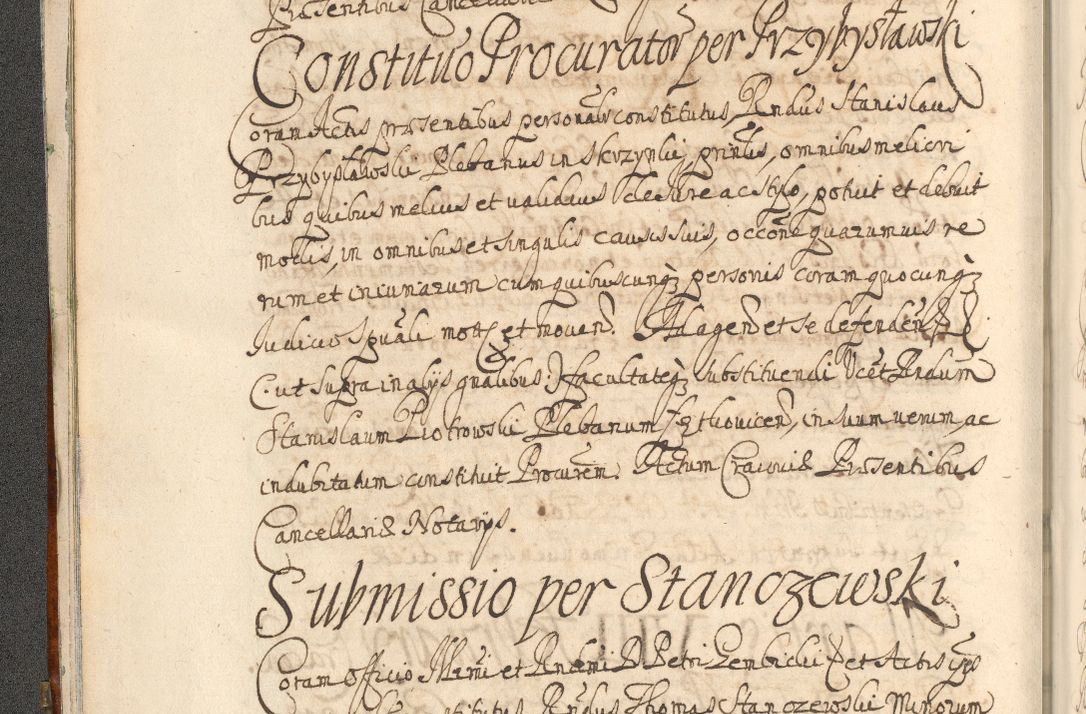 Præsentibus Cancellariæ
Constituo Procuratōr per Przybysławski
Coram Actis præsentibus personalr constitutus Rndūs Stanislaus
Przybysławski Plebanus in Skrzynki, prinlis, omnibus meliori
bus quibus melius et validius de iure ac stylo, potuit et debuit
modis, in omnibus et singulis causis suis, occōne quarumvis re
rum et iniuriarum cum quibuscunq3 personis coram quocunq3
Iudicio Spuāli mot et moven. Ad agen et se defenden
(. ut supra in alijs gnālibus :) facultateq3 substituendi Rndum
Stanislaum Piotrowski Plebanum in suum verum, ac
indubitatum constituit Procurem. Actum Cracoviæ Præsentibus
Cancellariæ Notarijs.
Submissio per Stanczewski
Coram Officio Illrmi et Rndmi D Petri Gembicki et Actis
Rndus Thomas Stanczewski Minorum